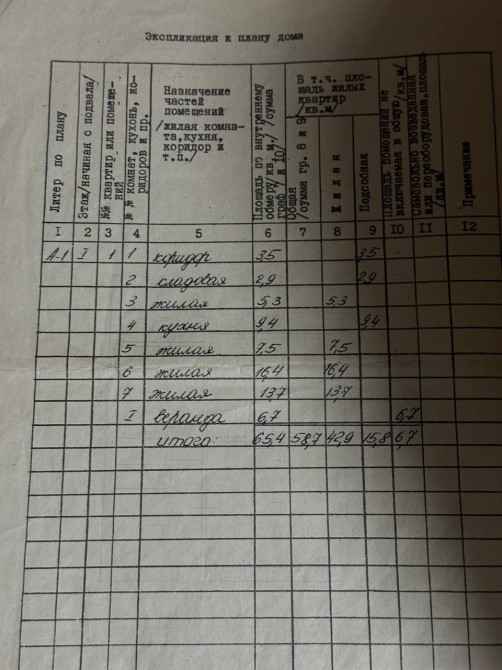 Экспликация к плану дома
Литер по плану
Этаж/начиная с подвала/
№№ квартир или помещений
№ № комнат, кухонь, коридоров и пр.
Назначение
частей
помещений
/жилая комна-
та,кухня,
коридор и
т.п./
Площадь по внутреннему
обмеру/кв.м./ /сумма
граф 7 и 10/
В т.ч. пло-
щадь жилых
квартир
/кв.м/
Общая
/сумма гр. 8 и 9/
Жилая
Подсобная
Площадь помещений не
включаемая в общую/кв.м/
Самовольно возведенная
или переоборудован.площадь
/кв.м/
Примечание
I 2 3 4 5 6 7 8 9 IO II I2
А-1 I 1 1 коридор 3,5 3,5
2 кладовая 2,9 2,9
3 жилая 5,3 5,3
4 кухня 9,4 9,4
5 жилая 7,5 7,5
6 жилая 16,4 16,4
7 жилая 13,7 13,7
I веранда 6,7 6,7
итого: 65,4 58,7 42,9 15,8 6,7